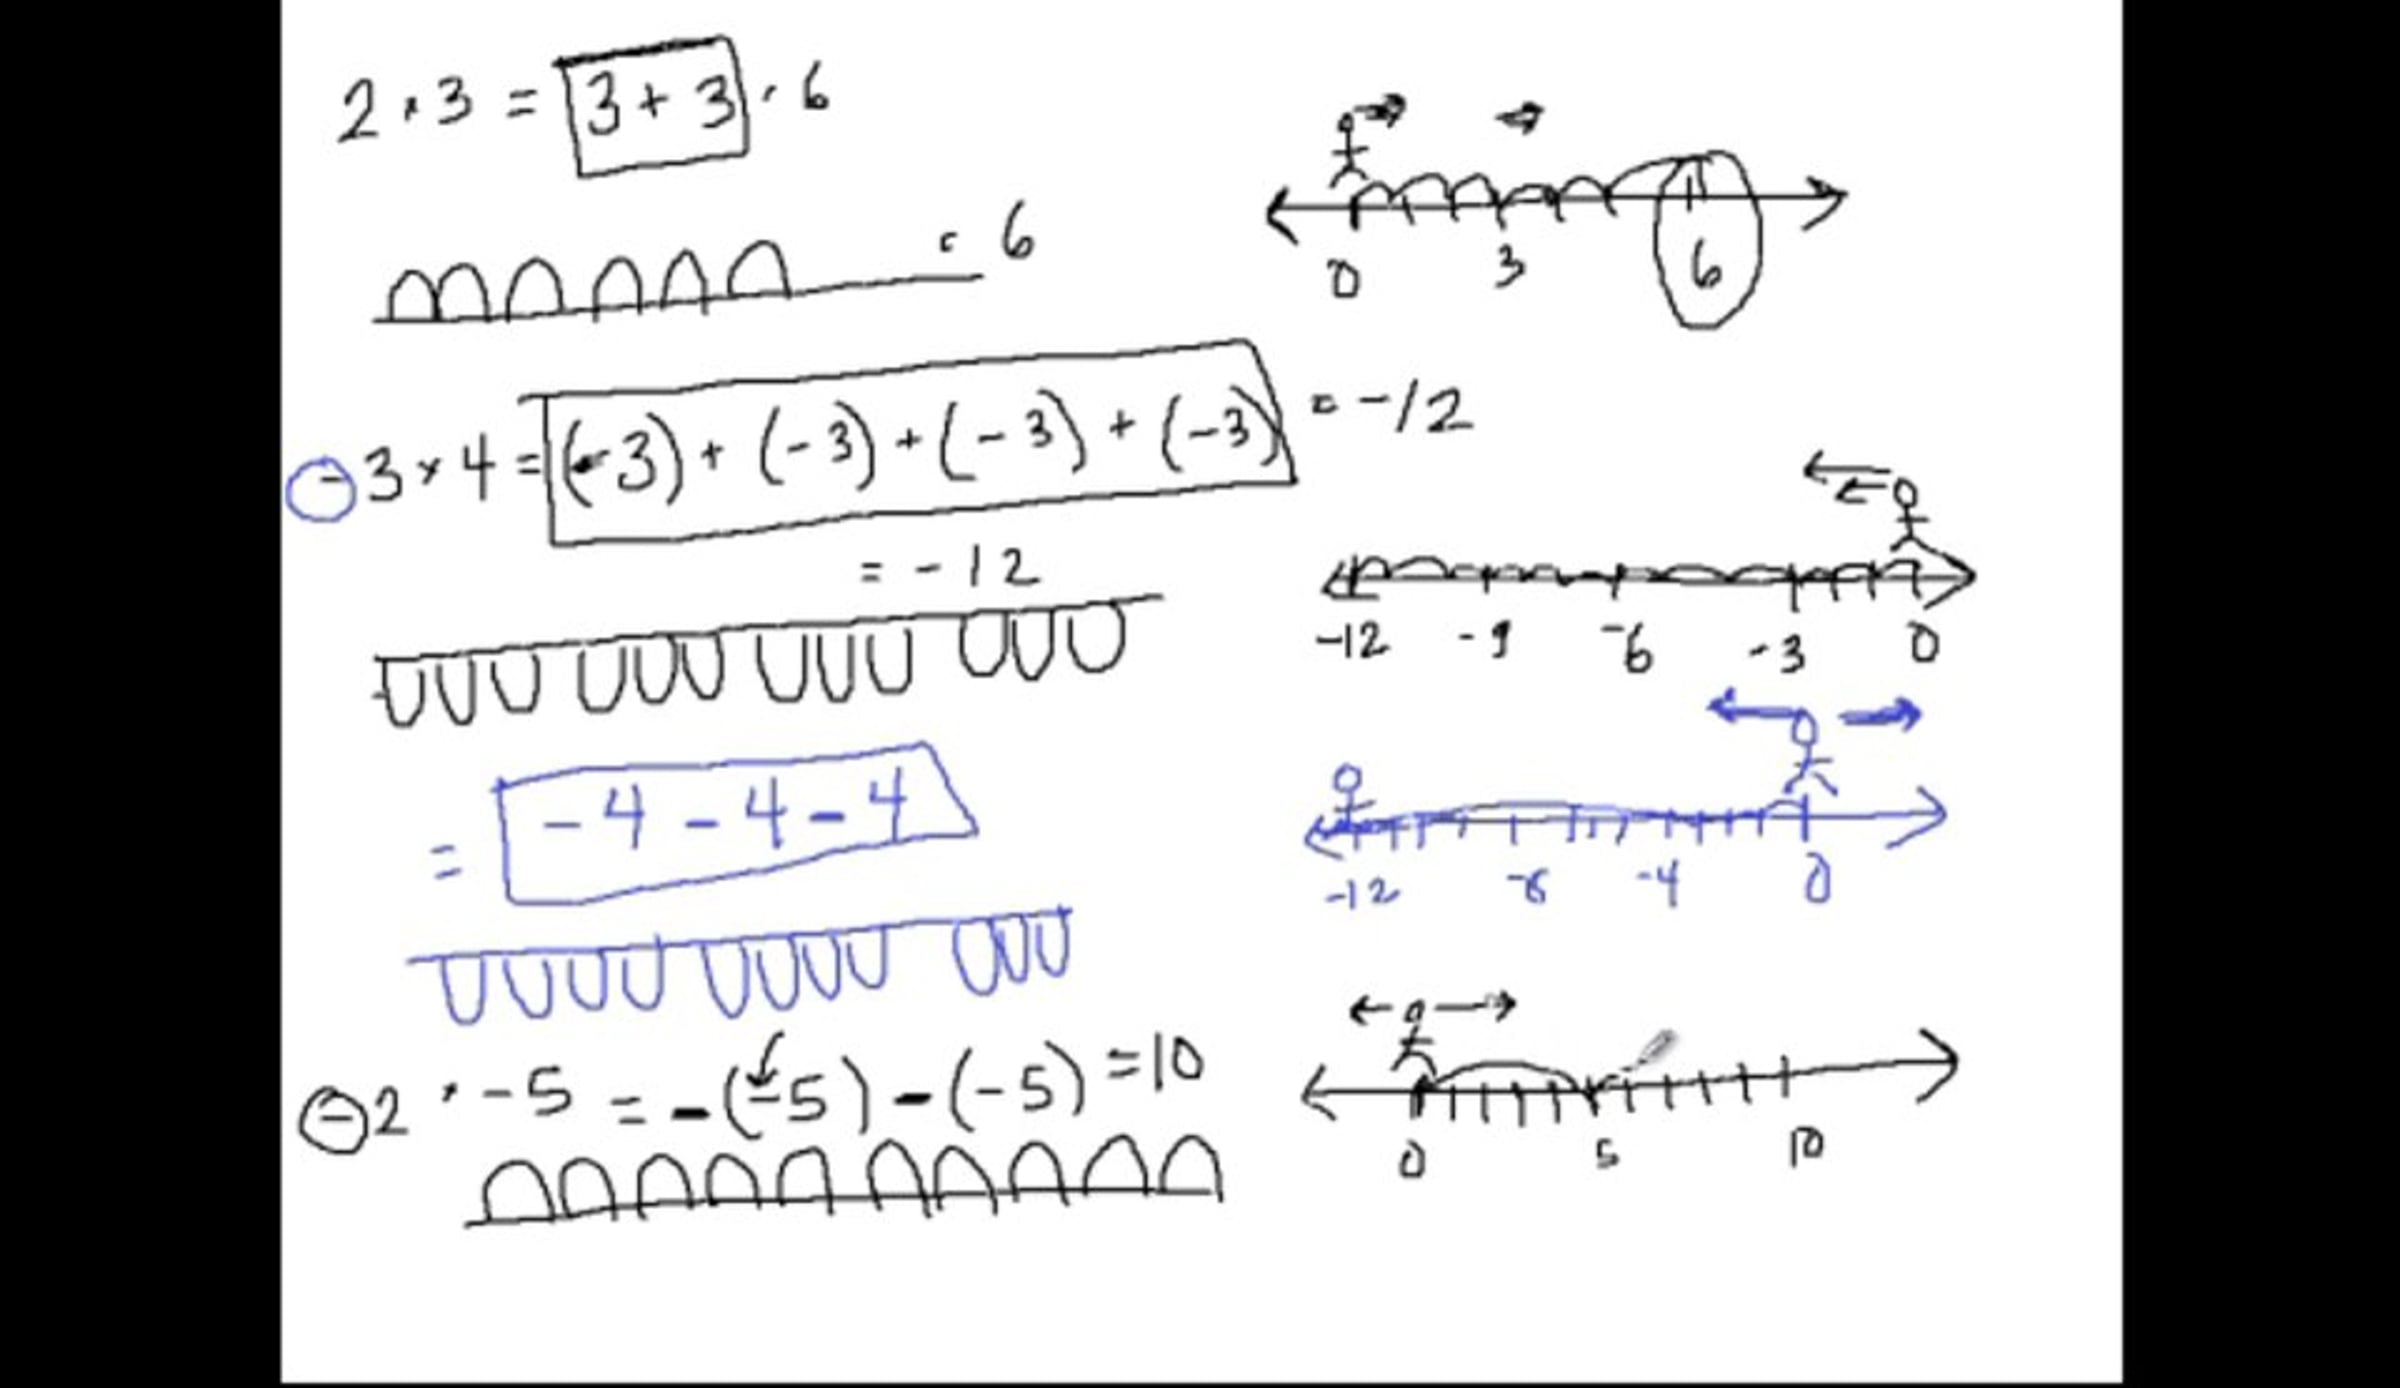 2 · 3 = 3 + 3 · 6
= 6
0 3 6
-3 × 4 = (-3) + (-3) + (-3) + (-3) = -12
= -12
-12 -9 -6 -3 0
= -4 -4 -4
-12 -4 0
-2 · -5 = -(-5) - (-5) = 10
0 5 10